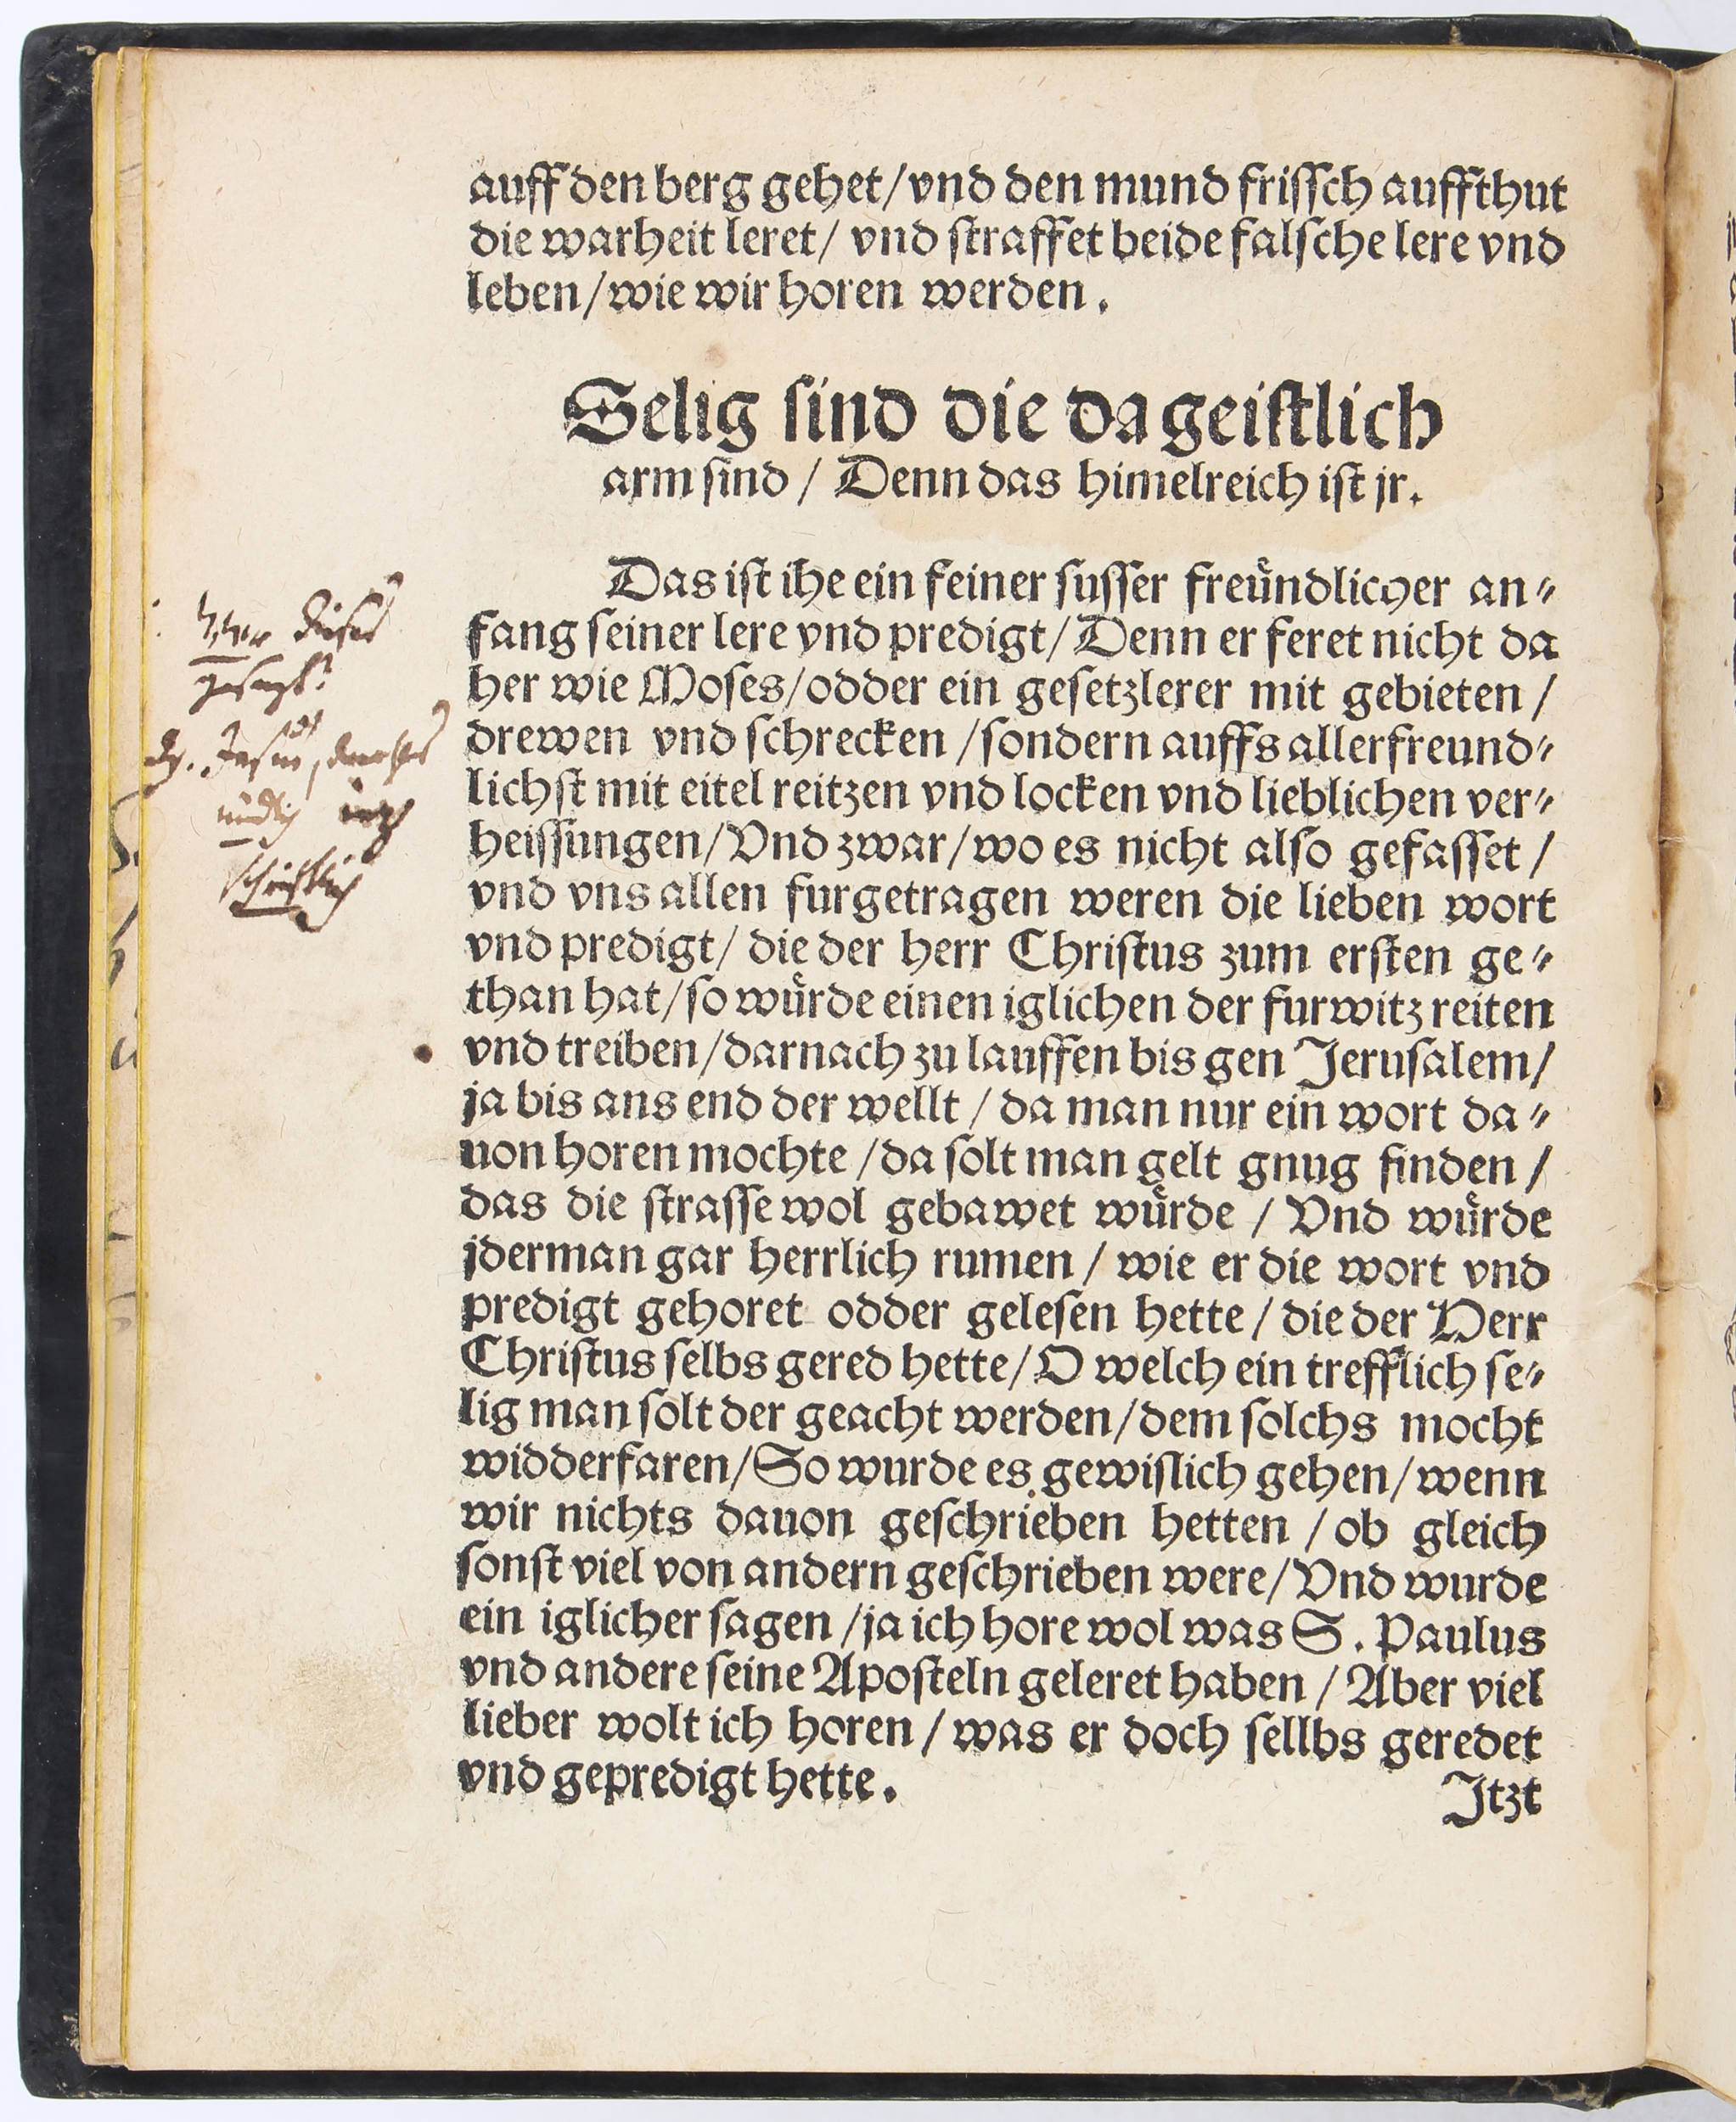 auff den berg gehet/vnd den mund frissch auffthut
die warheit leret/ vnd straffet beide falsche lere vnd
leben/wie wir horen werden.
Selig sind die da geistlich
arm sind / Denn das himelreich ist jr.
Das ist ihe ein feiner susser freündlicher an-
fang seiner lere vnd predigt/ Denn er feret nicht da
her wie Moses/odder ein gesetzlerer mit gebieten /
drewen vnd schrecken /sondern auffs allerfreund-
lichst mit eitel reitzen vnd locken vnd lieblichen ver-
heissungen/Vnd zwar/wo es nicht also gefasset /
vnd vns allen furgetragen weren die lieben wort
vnd predigt/ die der herr Christus zum ersten ge-
than hat/so wuͤrde einen iglichen der furwitz reiten
vnd treiben/darnach zu lauffen bis gen Jerusalem/
ja bis ans end der wellt / da man nur ein wort da-
uon horen mochte /da solt man gelt gnug finden /
das die strasse wol gebawet wuͤrde / Vnd wuͤrde
jderman gar herrlich rumen / wie er die wort vnd
predigt gehoret odder gelesen hette / die der Herr
Christus selbs gered hette/O welch ein trefflich se-
lig man solt der geacht werden/dem solchs mocht
widderfaren/So wurde es gewislich gehen/wenn
wir nichts dauon geschrieben hetten /ob gleich
sonst viel von andern geschrieben were/Vnd wurde
ein iglicher sagen /ja ich hore wol was S. Paulus
vnd andere seine Aposteln geleret haben / Aber viel
lieber wolt ich horen / was er doch sellbs geredet
vnd gepredigt hette.
Itzt
dieses
gesagt?
Jesus
schriftlich